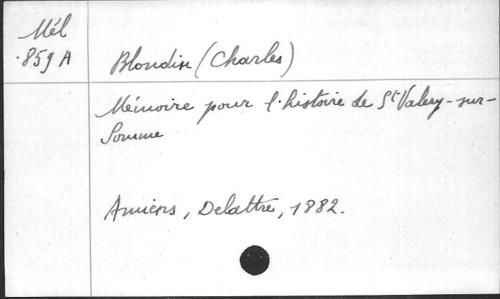 Mél
859 A
Blondin (Charles)
Mémoire pour l'histoire de St Valery-sur-
Somme
Amiens, Delattre, 1882.